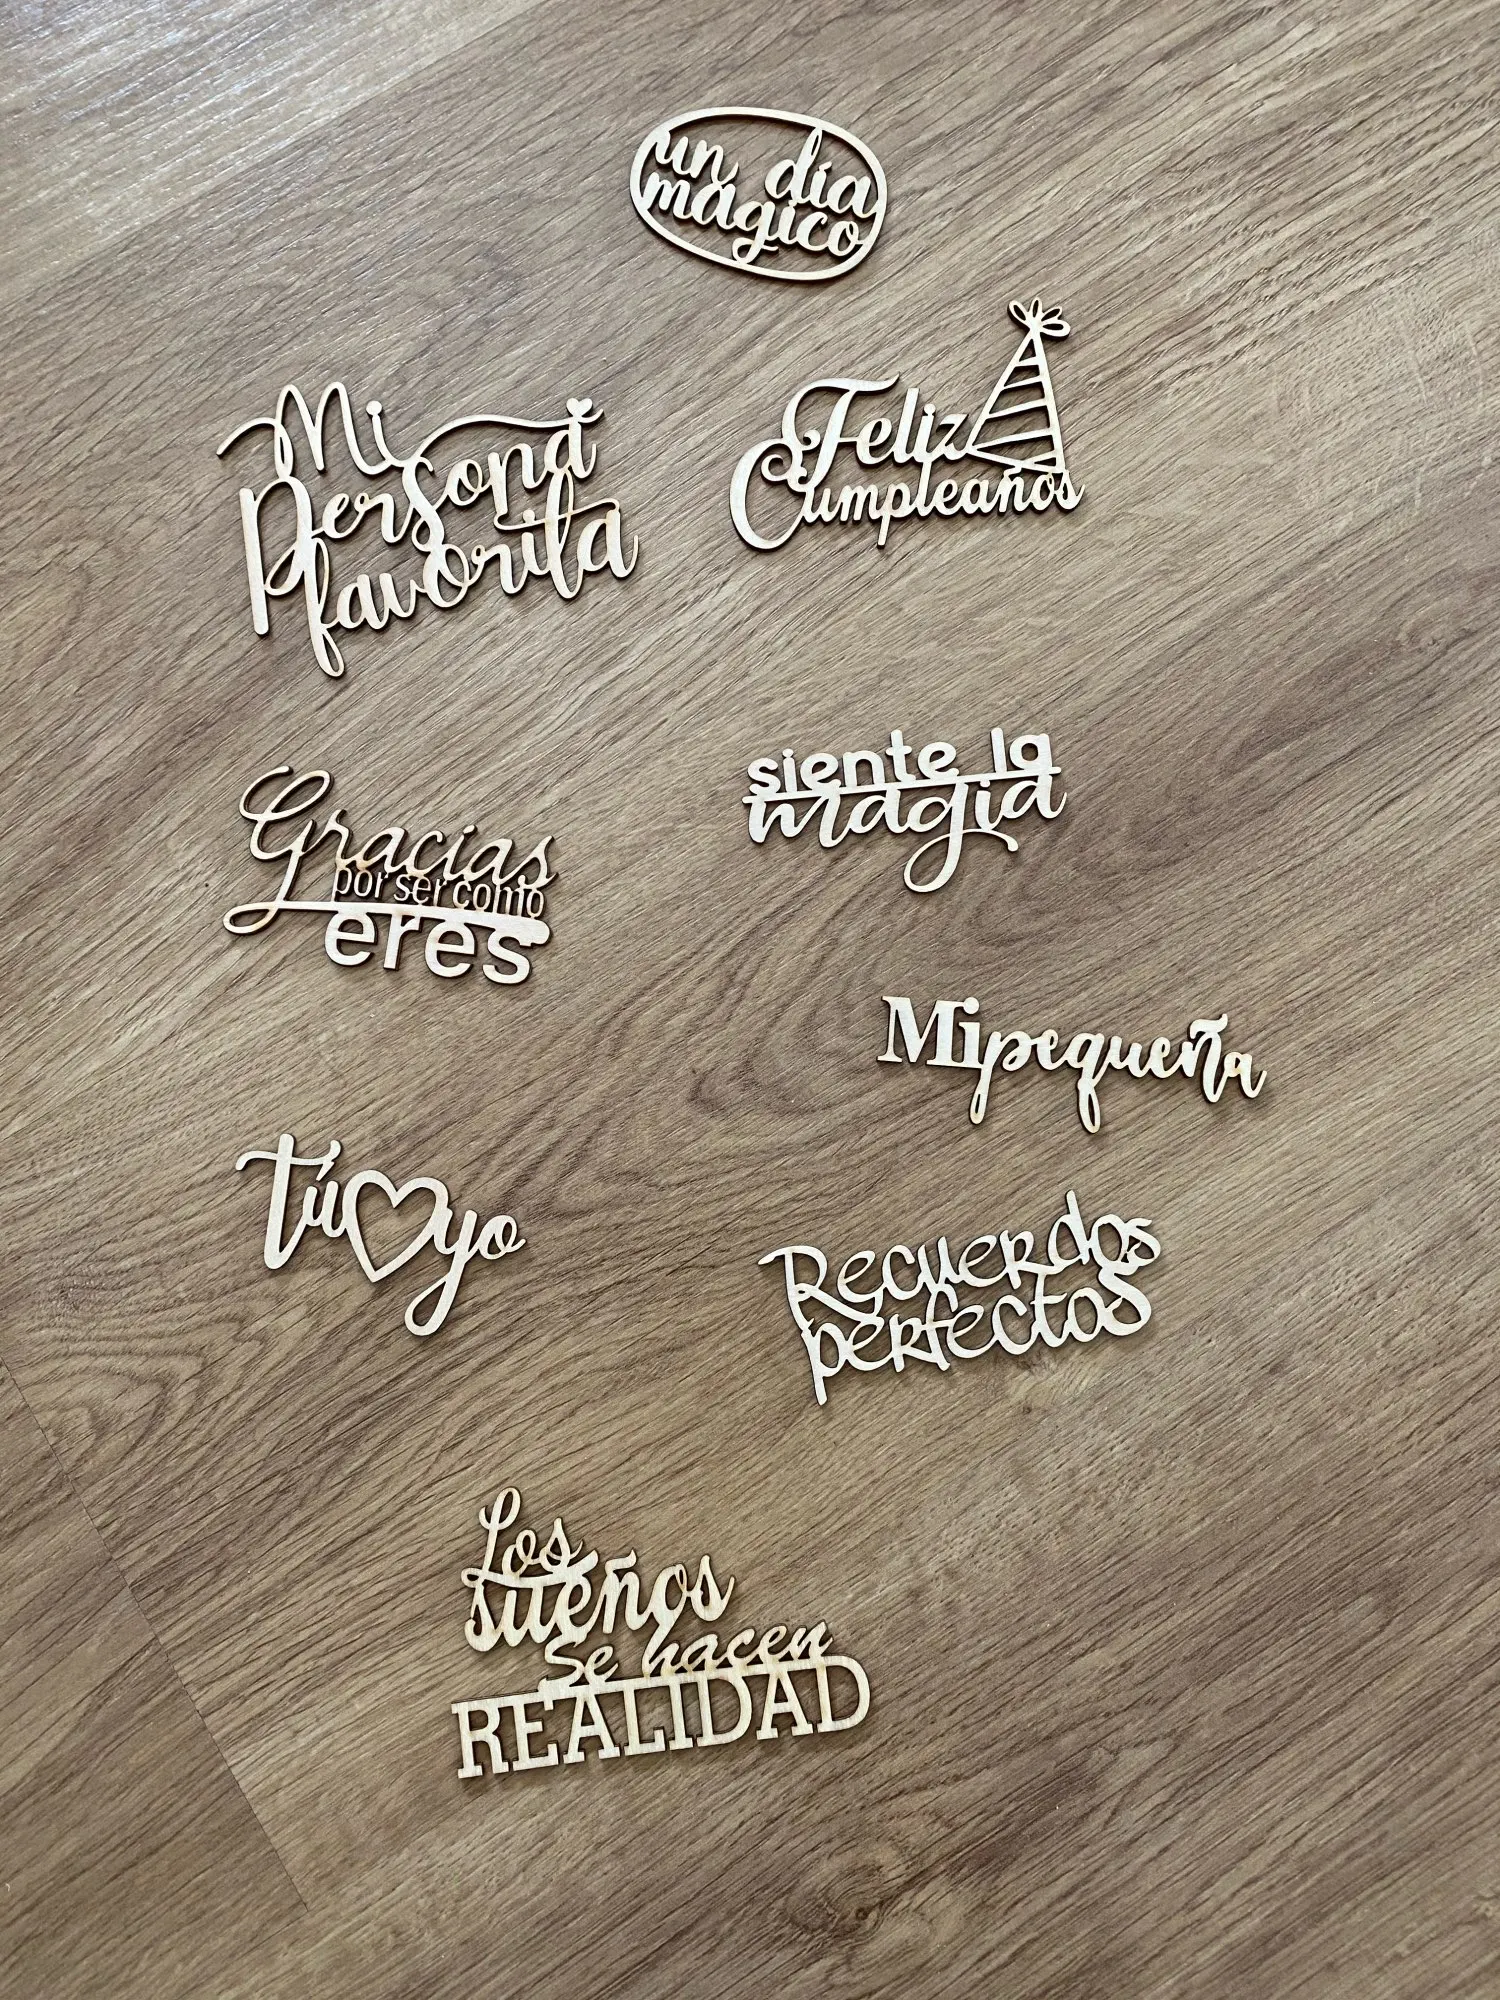 un día
magico
Mi
Persona
favorita
Feliz
Cumpleaños
Gracias
por ser como
eres
siente la
magia
Mi pequeña
Tú yo
Recuerdos
perfectos
Los
sueños
Se hacen
REALIDAD